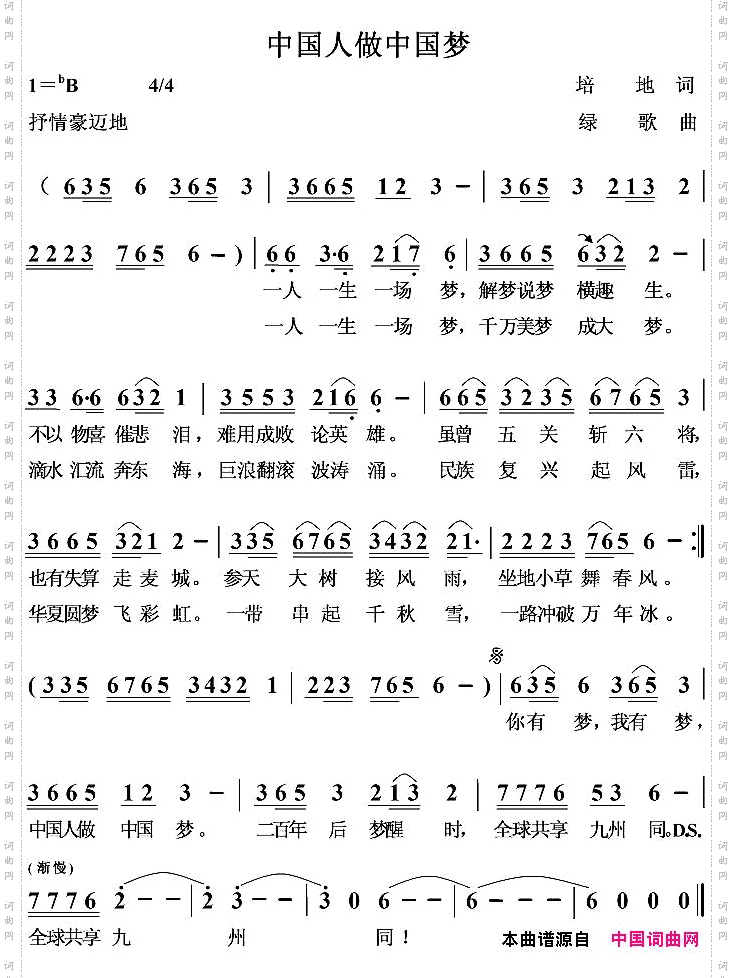 中国人做中国梦
1=bB 4/4 培 地 词
抒情豪迈地 绿 歌 曲
( 6 3 5 6 3 6 5 3 | 3 6 6 5 1 2 3 - | 3 6 5 3 2 1 3 2 |
2 2 2 3 7 6 5 6 - ) | 6 6 3·6 2 1 7 6 | 3 6 6 5 6 3 2 2 - |
一人 一生 一场 梦，解梦说梦 横趣 生。
一人 一生 一场 梦，千万美梦 成大 梦。
3 3 6·6 6 3 2 1 | 3 5 5 3 2 1 6 6 - | 6 6 5 3 2 3 5 6 7 6 5 3 |
不以 物喜 催悲 泪，难用成败 论英 雄。 虽曾 五 关 斩 六 将，
滴水 汇流 奔东 海，巨浪翻滚 波涛 涌。 民族 复 兴 起 风 雷，
3 6 6 5 3 2 1 2 - | 3 3 5 6 7 6 5 3 4 3 2 2 1· | 2 2 2 3 7 6 5 6 - :|
也有失算 走麦 城。 参天 大 树 接 风 雨，坐地小草 舞 春风。
华夏圆梦 飞彩 虹。 一带 串 起 千 秋 雪，一路冲破 万 年 冰。
( 3 3 5 6 7 6 5 3 4 3 2 1 | 2 2 3 7 6 5 6 - ) | 6 3 5 6 3 6 5 3 |
你有 梦，我有 梦，
3 6 6 5 1 2 3 - | 3 6 5 3 2 1 3 2 | 7 7 7 6 5 3 6 - |
中国人做 中国 梦。 二百年 后 梦醒 时，全球共享 九州 同。D.S.
(渐慢)
7 7 7 6 2 - - | 2 3 - - | 3 0 6 - | 6 - - - | 6 0 0 0 ||
全球共享 九 州 同！
本曲谱源自 中国词曲网
词曲网